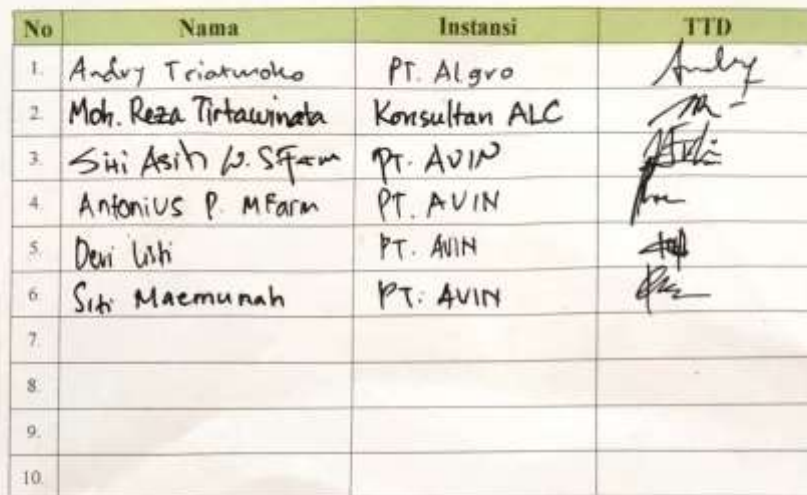 No Nama Instansi TTD
1. Andry Triatmoko PT. Algro Andry
2. Moh. Reza Tirtawinata Konsultan ALC
3. Siti Asih W. SFarm PT. AVIN
4. Antonius P. MFarm PT. AVIN
5. Devi Listi PT. AVIN
6. Siti Maemunah PT. AVIN
7.
8.
9.
10.